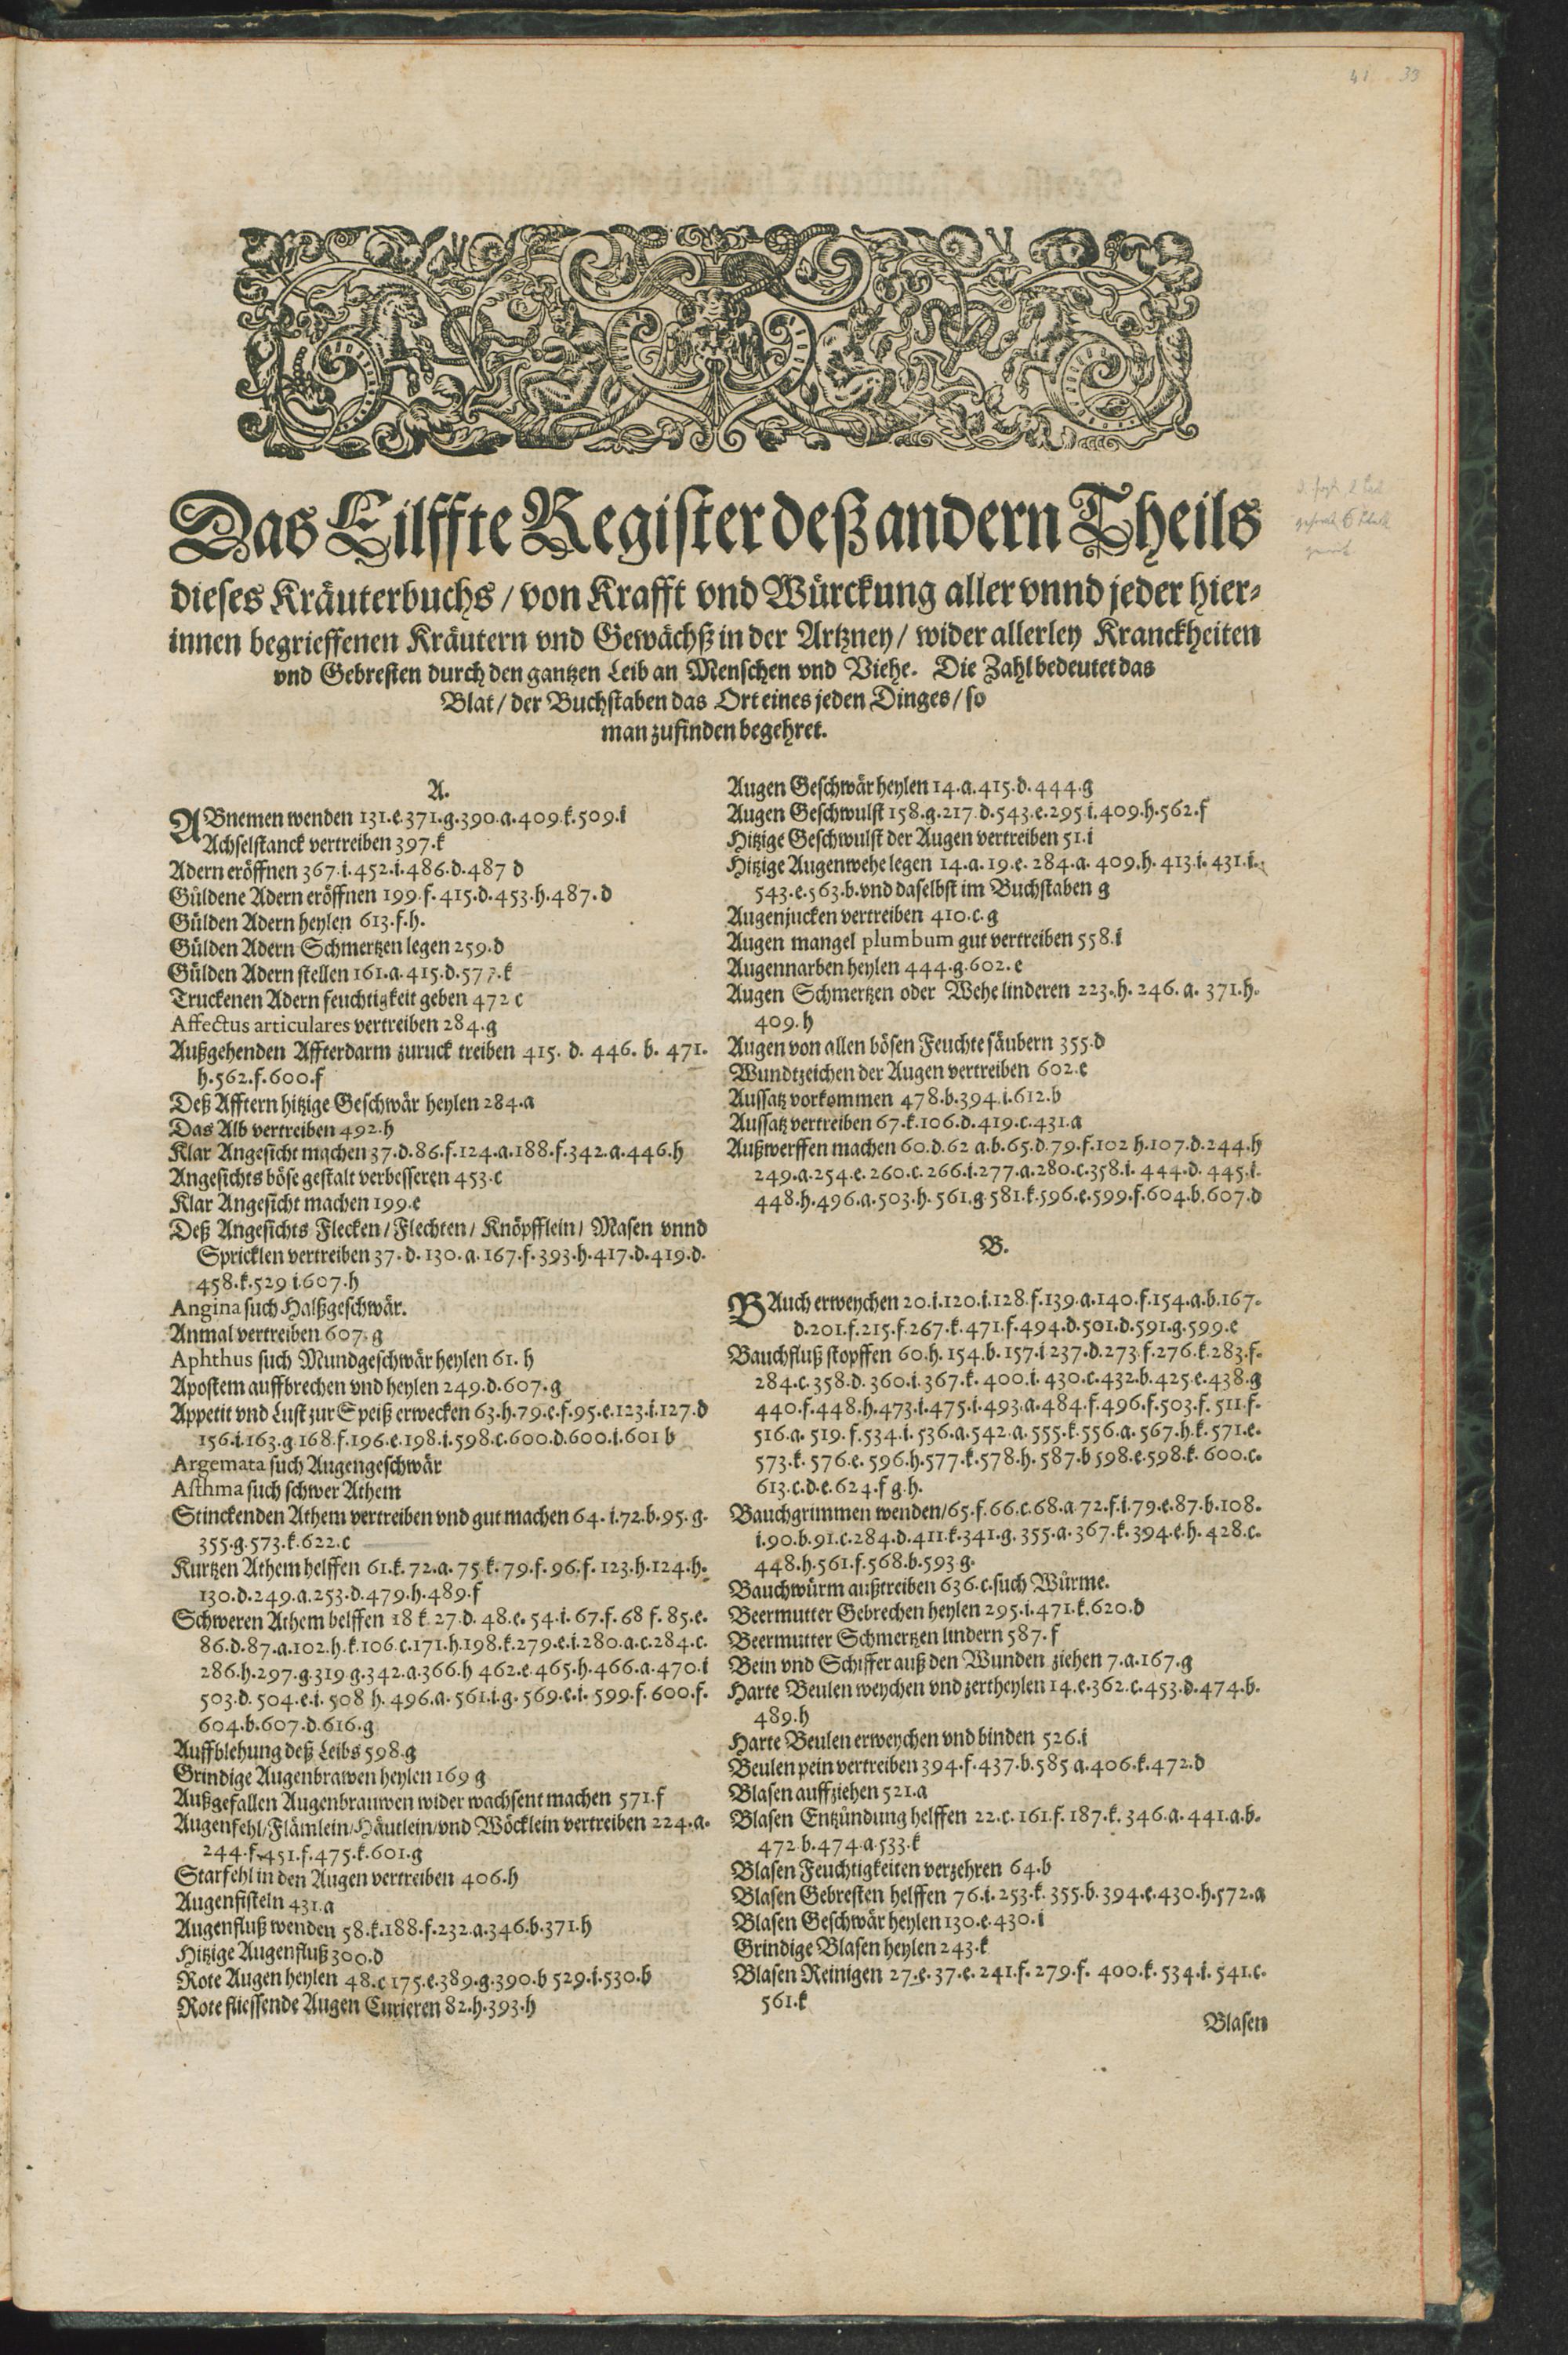 41 33
Das Eilffte Register deß andern Theils
dieses Kräuterbuchs / von Krafft vnd Würckung aller vnnd jeder hier⸗
innen begrieffenen Kräutern vnd Gewächß in der Artzney / wider allerley Kranckheiten
vnd Gebresten durch den gantzen Leib an Menschen vnd Viehe. Die Zahl bedeutet das
Blat / der Buchstaben das Ort eines jeden Dinges / so
man zufinden begehret.
A.
ABnemen wenden 131.e.371.g.390.a.409.k.509.i
Achselstanck vertreiben 397.k
Adern eröffnen 367.i.452.i.486.d.487 d
Güldene Adern eröffnen 199.f.415.d.453.h.487.d
Gülden Adern heylen 613.f.h.
Gülden Adern Schmertzen legen 259.d
Gülden Adern stellen 161.a.415.d.577.k
Truckenen Adern feuchtigkeit geben 472 c
Affectus articulares vertreiben 284.g
Außgehenden Affterdarm zuruck treiben 415. d. 446. b. 471.
h.562.f.600.f
Deß Afftern hitzige Geschwär heylen 284.a
Das Alb vertreiben 492.h
Klar Angesicht machen 37.d.86.f.124.a.188.f.342.a.446.h
Angesichts böse gestalt verbesseren 453.c
Klar Angesicht machen 199.e
Deß Angesichts Flecken / Flechten / Knöpfflein / Masen vnnd
Spricklen vertreiben 37.d.130.a.167.f.393.h.417.d.419.d.
458.k.529 i.607.h
Angina such Halßgeschwär.
Anmal vertreiben 607.g
Aphthus such Mundgeschwär heylen 61. h
Apostem auffbrechen vnd heylen 249.d.607.g
Appetit vnd Lust zur Speiß erwecken 63.h.79.e.f.95.e.123.i.127.d
156.i.163.g.168.f.196.e.198.i.598.c.600.d.600.i.601 b
Argemata such Augengeschwär
Asthma such schwer Athem
Stinckenden Athem vertreiben vnd gut machen 64. i.72.b.95.g.
355.g.573.k.622.c
Kurtzen Athem helffen 61.k.72.a.75 k.79.f.96.f.123.h.124.h.
130.d.249.a.253.d.479.h.489.f
Schweren Athem belffen 18 k.27.d. 48.e. 54.i. 67.f. 68 f. 85.e.
86.d.87.a.102.h.k.106.c.171.h.198.k.279.e.i.280.a.c.284.c.
286.h.297.g.319.g.342.a.366.h 462.e.465.h.466.a.470.i
503.d. 504.e.i. 508 h. 496.a. 561.i.g. 569.e.i. 599.f. 600.f.
604.b.607.d.616.g
Auffblehung deß Leibs 598.g
Grindige Augenbrawen heylen 169 g
Außgefallen Augenbrauwen wider wachsent machen 571.f
Augenfehl / Flämlein / Häutlein / vnd Wöcklein vertreiben 224.a.
244.f.451.f.475.k.601.g
Starfehl in den Augen vertreiben 406.h
Augenfisteln 431.a
Augenfluß wenden 58.k.188.f.232.a.346.b.371.h
Hitzige Augenfluß 300.d
Rote Augen heylen 48.c 175.e.389.g.390.b 529.i.530.b
Rote fliessende Augen Curieren 82.h.393.h
Augen Geschwär heylen 14.a.415.d.444.g
Augen Geschwulst 158.g.217 d.543.e.295 i.409.h.562.f
Hitzige Geschwulst der Augen vertreiben 51.i
Hitzige Augenwehe legen 14.a.19.e. 284.a. 409.h. 413.i. 431.i.
543.e.563.b.vnd daselbst im Buchstaben g
Augenjucken vertreiben 410.c.g
Augen mangel plumbum gut vertreiben 558.i
Augennarben heylen 444.g.602.e
Augen Schmertzen oder Wehe linderen 223.h. 246. a. 371.h.
409.h
Augen von allen bösen Feuchte säubern 355.d
Wundtzeichen der Augen vertreiben 602.e
Aussatz vorkommen 478.b.394.i.612.b
Aussatz vertreiben 67.k.106.d.419.c.431.a
Außwerffen machen 60.d.62 a.b.65.d.79.f.102 h.107.d.244.h
249.a.254.e.260.c.266.i.277.a.280.c.358.i.444.d.445.i.
448.h.496.a.503.h.561.g.581.k.596.e.599.f.604.b.607.d
B.
BAuch erweychen 20.i.120.i.128.f.139.a.140.f.154.a.b.167.
d.201.f.215.f.267.k.471.f.494.d.501.d.591.g.599.e
Bauchfluß stopffen 60.h.154.b.157.i 237.d.273.f.276.k.283.f.
284.c.358.d.360.i.367.k.400.i.430.c.432.b.425.e.438.g
440.f.448.h.473.i.475.i.493.a.484.f.496.f.503.f.511.f.
516.a.519.f.534.i.536.a.542.a.555.k.556.a.567.h.k.571.e.
573.k.576.e.596.h.577.k.578.h.587.b 598.e.598.k.600.c.
613.c.d.e.624.f g.h.
Bauchgrimmen wenden / 65.f.66.c.68.a 72.f.i.79.e.87.b.108.
i.90.b.91.c.284.d.411.k.341.g.355.a.367.k.394.e.h.428.c.
448.h.561.f.568.b.593 g.
Bauchwürm außtreiben 636.c.such Würme.
Beermutter Gebrechen heylen 295.i.471.k.620.d
Beermutter Schmertzen lindern 587.f
Bein vnd Schiffer auß den Wunden ziehen 7.a.167.g
Harte Beulen weychen vnd zertheylen 14.e.362.c.453.d.474.b.
489.h
Harte Beulen erweychen vnd binden 526.i
Beulen pein vertreiben 394.f.437.b.585 a.406.k.472.d
Blasen auffziehen 521.a
Blasen Entzündung helffen 22.c.161.f.187.k.346.a.441.a.b.
472 b.474.a.533.k
Blasen Feuchtigkeiten verzehren 64.b
Blasen Gebresten helffen 76.i.253.k.355.b.394.e.430.h.572.a
Blasen Geschwär heylen 130.e.430.i
Grindige Blasen heylen 243.k
Blasen Reinigen 27.e.37.e.241.f.279.f. 400.k.534.i.541.c.
561.k
Blasen